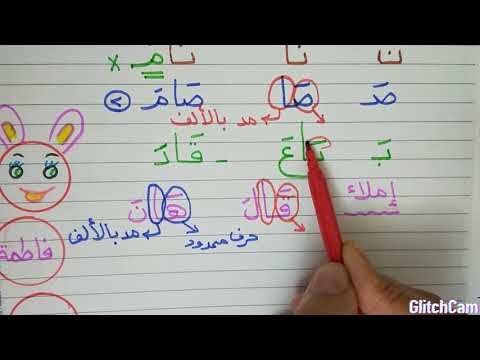 ن نا نام x
صَ صَا صَامَ ٢
مد بالألف
بَ بَاعَ - قَادَ
إملاء قَالَ هَانَ
حرف ممدود مد بالألف
فاطمة
GlitchCam